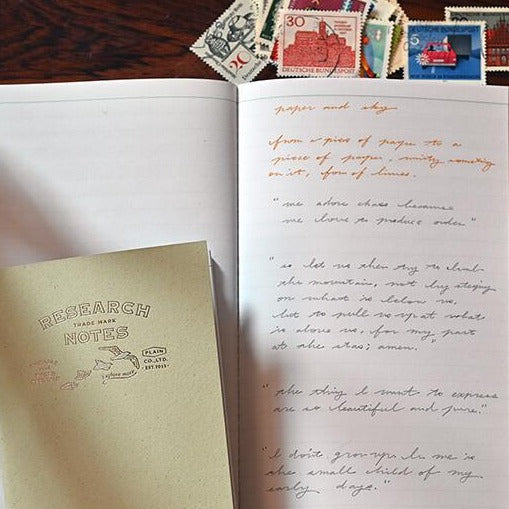 30
20
DEUTSCHE BUNDESPOST
5
DEUTSCHE BUNDESPOST
paper and sky
from a piece of paper to a
piece of paper, writing someting
on it, of lines.
"we adore chaos because
we love to produce order"
"so let us then try to climb
the mountain, not by steping
on what is below us,
but to pull us up at what
is above us, for my part
at the stars; amen."
"the thing I want to express
are so beautiful and pure."
"I don't grow up. In me is
the small child of my
early days."
RESEARCH
TRADE MARK
NOTES
PLAIN
CO.,LTD.
explore more